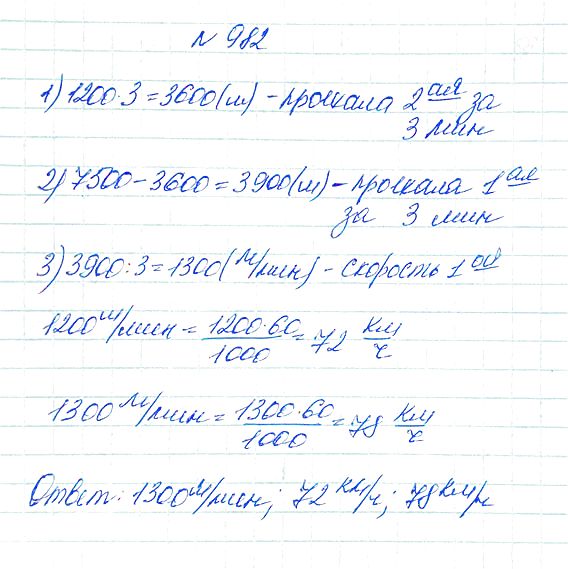 № 982
1) 1200·3=3600(м) - проехала 2ая за
3 мин
2) 7500-3600=3900(м) - проехала 1ая
за 3 мин
3) 3900:3=1300(м/мин) - скорость 1ой
1200 м/мин = 1200·60/1000 = 72 км/ч
1300 м/мин = 1300·60/1000 = 78 км/ч
Ответ: 1300 м/мин; 72 км/ч; 78 км/ч